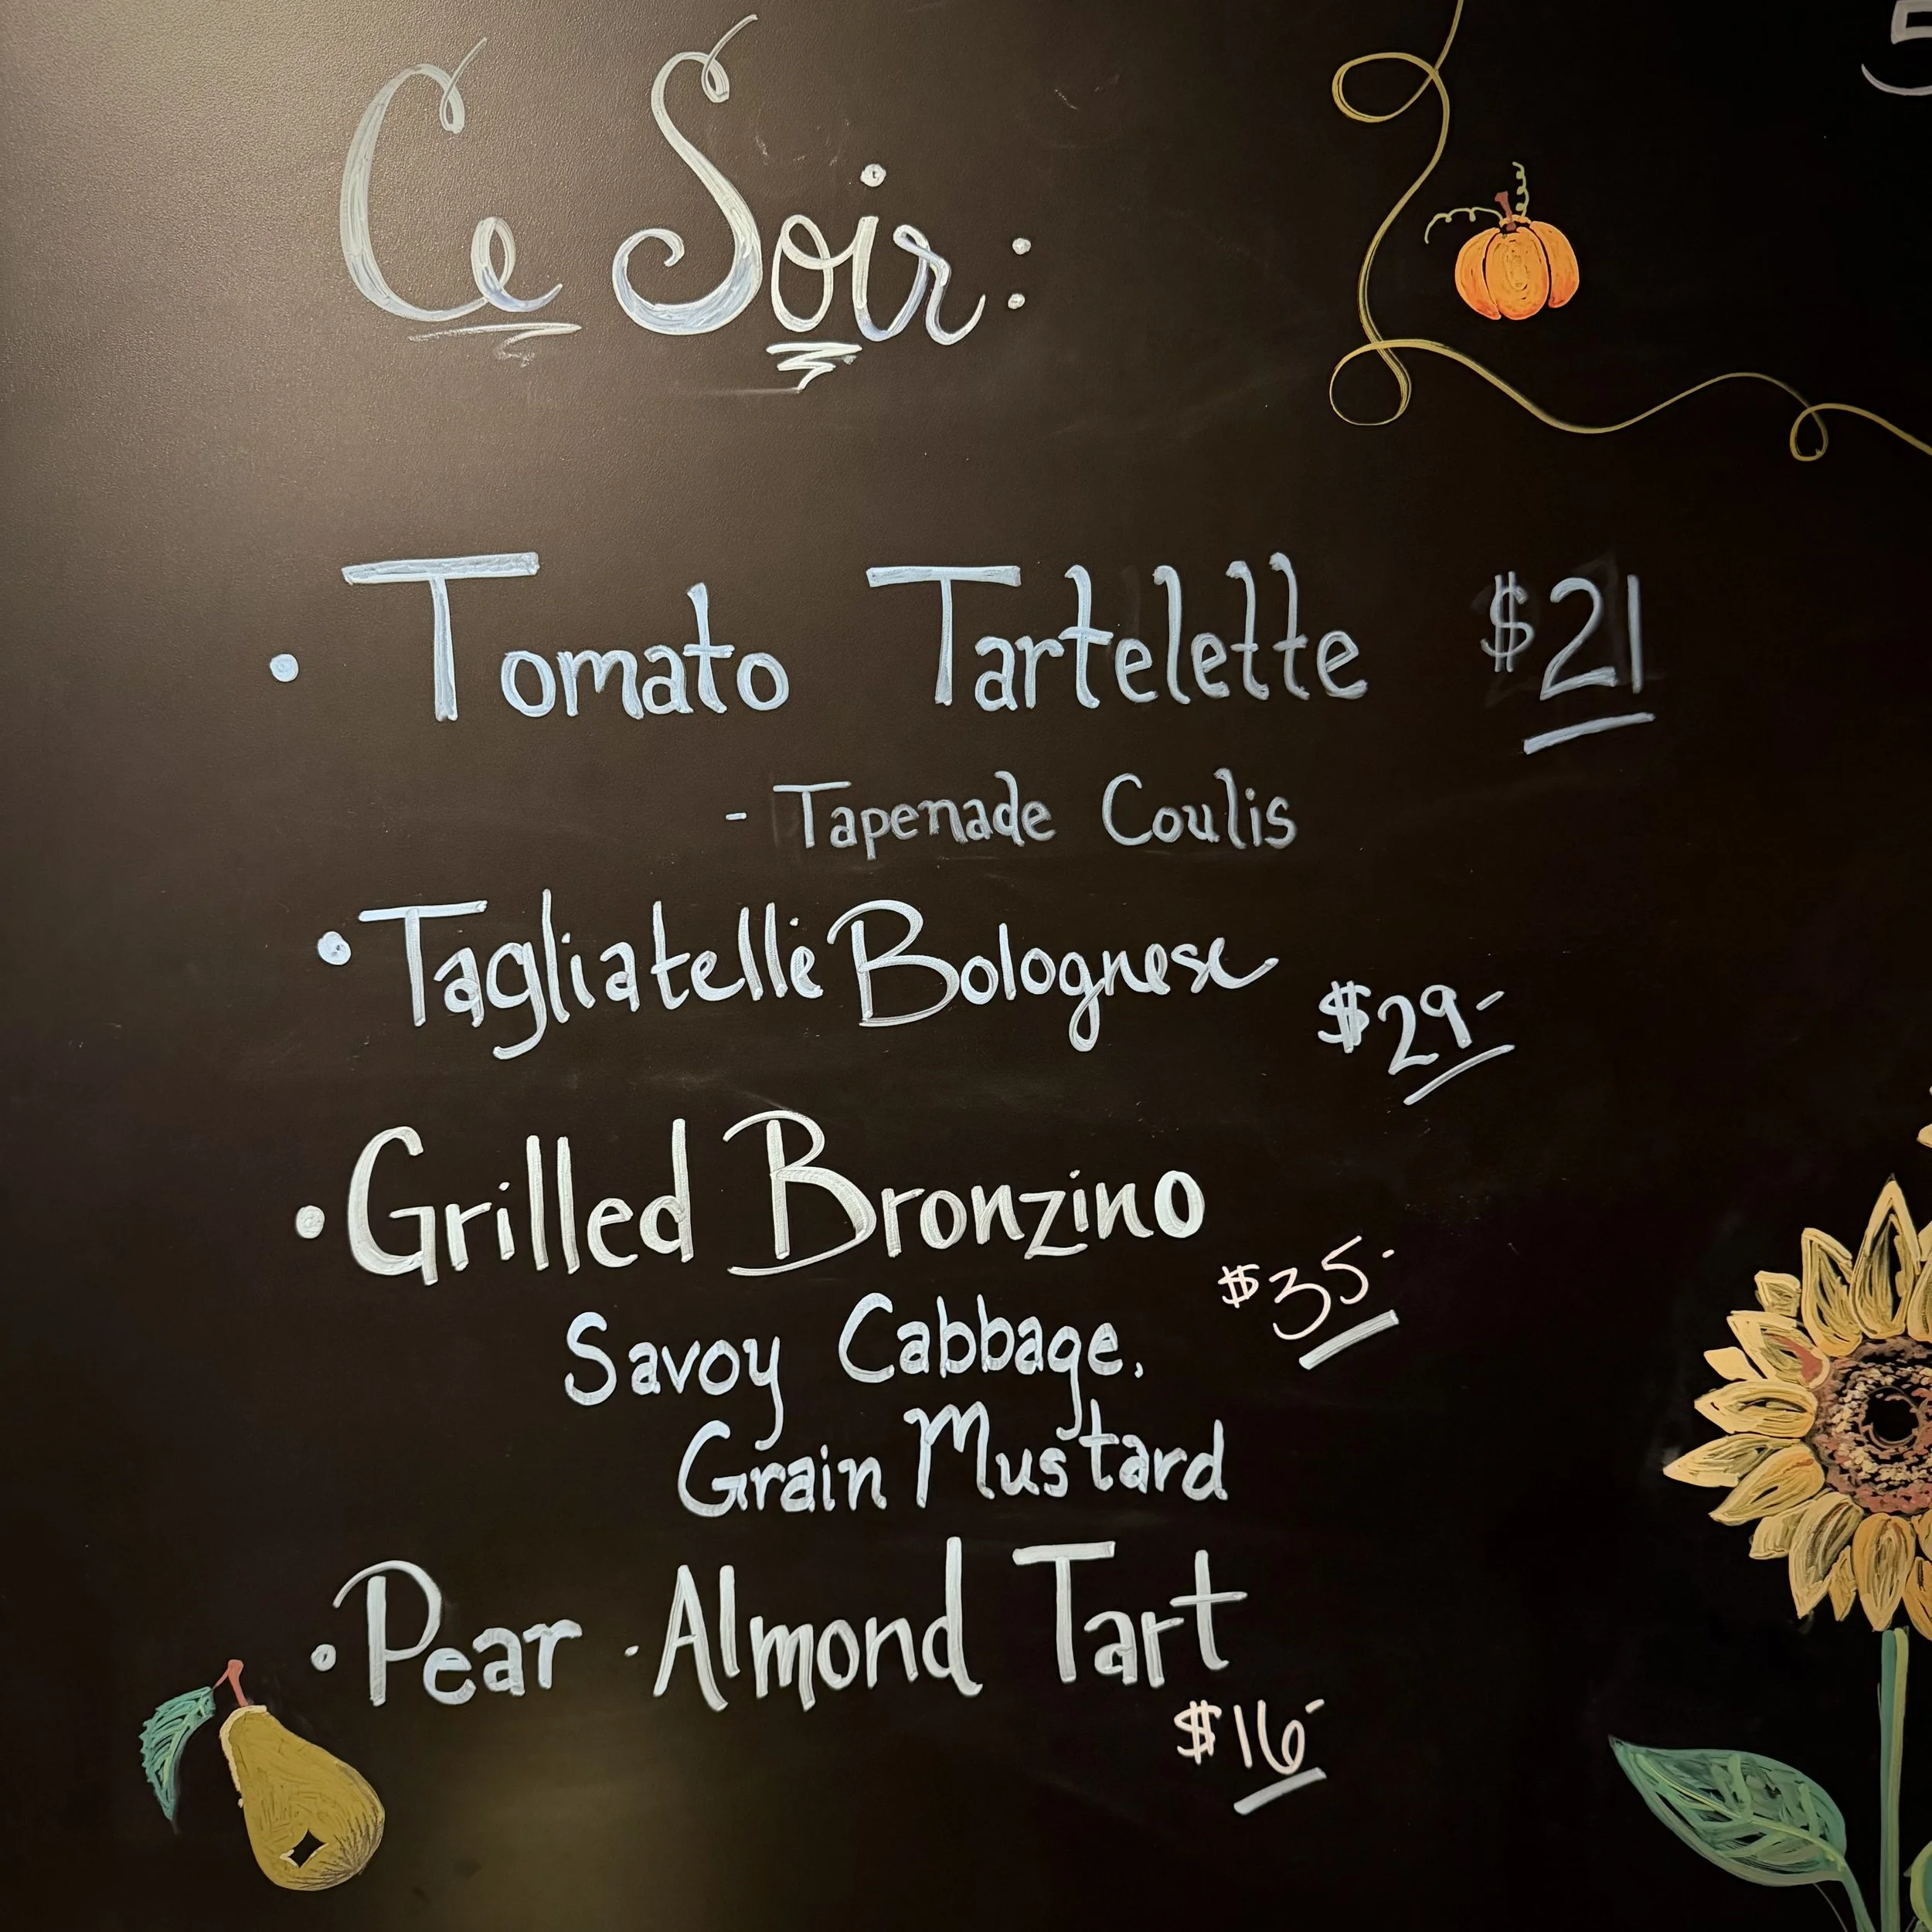 Ce Soir:
• Tomato Tartelette $21
- Tapenade Coulis
• Tagliatelle Bolognese
$29-
• Grilled Bronzino
$35-
Savoy Cabbage,
Grain Mustard
• Pear - Almond Tart
$16-
5